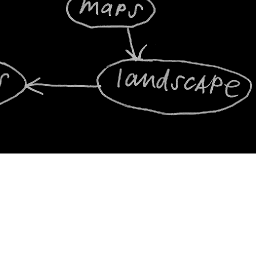 maps
landscape